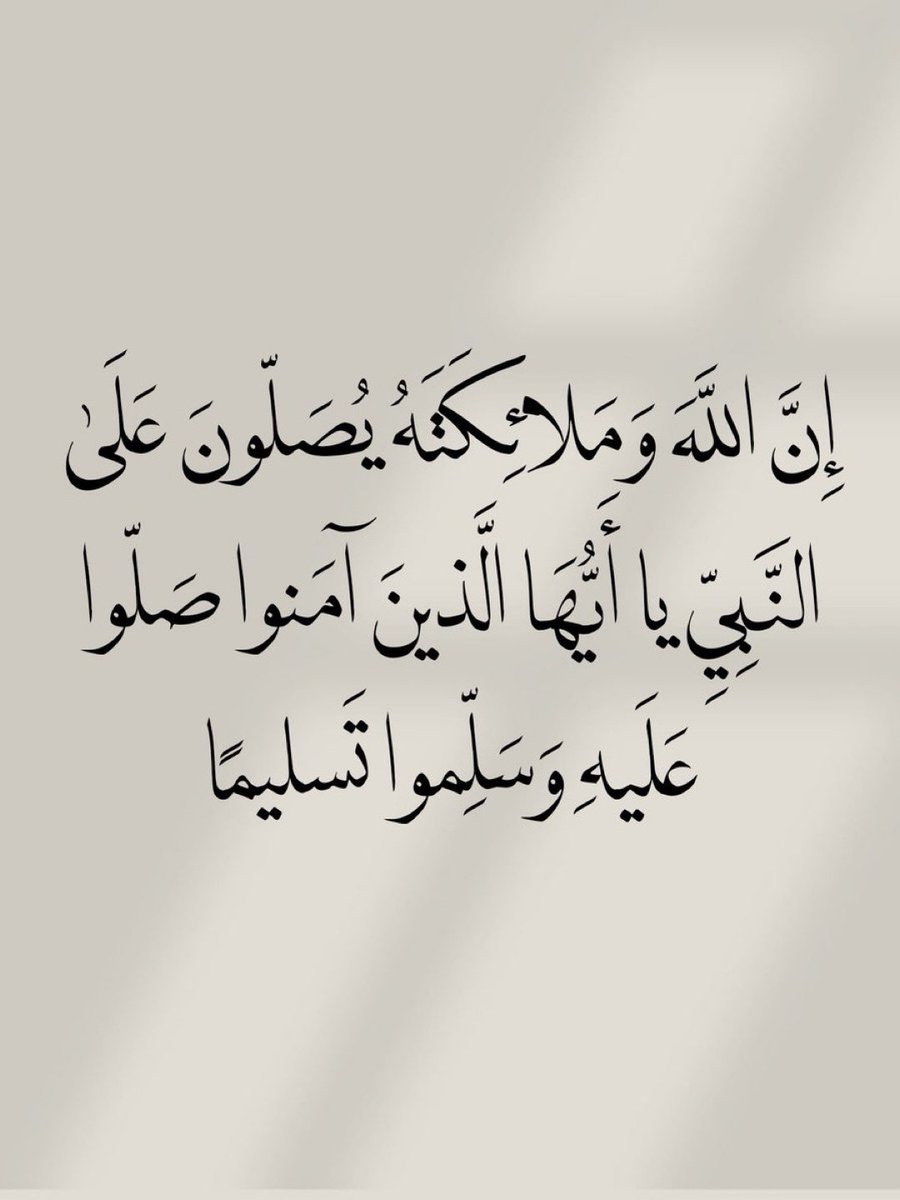 إِنَّ اللَّهَ وَمَلائِكَتَهُ يُصَلّونَ عَلَىٰ
النَّبِيِّ يا أَيُّهَا الَّذينَ آمَنوا صَلّوا
عَلَيهِ وَسَلِّموا تَسليمًا